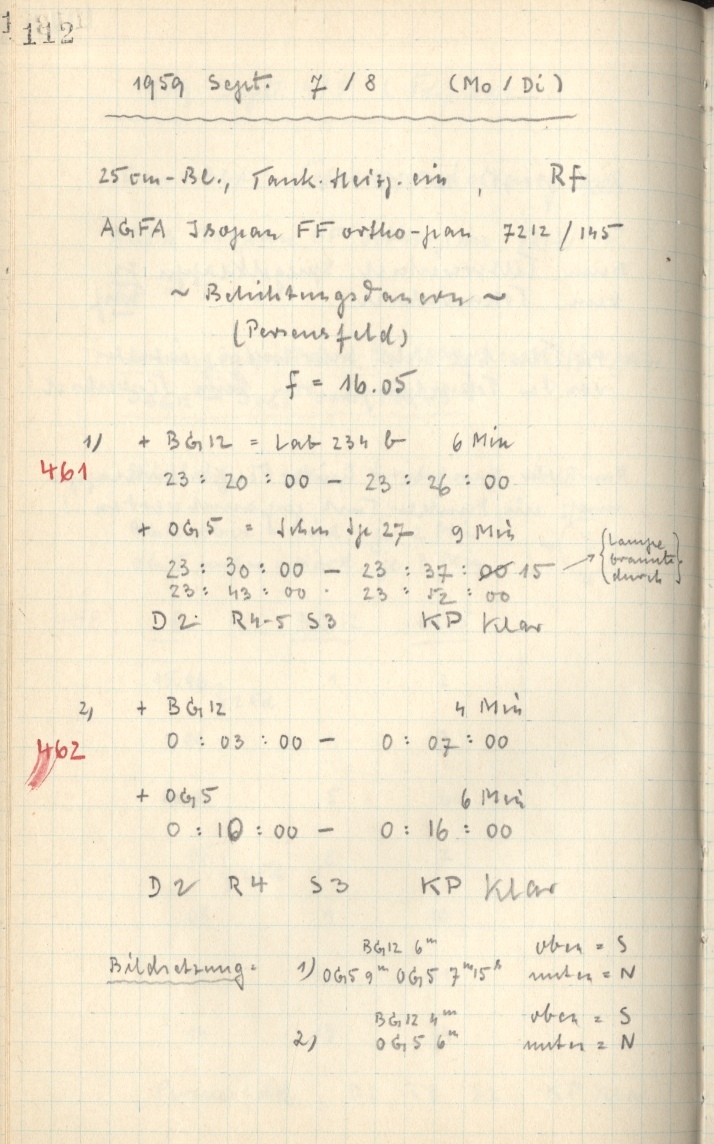 112
1959 Sept. 7 / 8 (Mo / Di)
25 cm-Bl., Tank. Heizg. ein, Rf
AGFA Isopan FF ortho-pan 7212 / 145
~ Belichtungsdauern ~
(Perseusfeld)
f = 16.05
1) + BG12 = Lab 234 b 6 Min
461
23 : 20 : 00 - 23 : 26 : 00
+ OG5 = 27 9 Min
23 : 30 : 00 - 23 : 37 : 00 15 → {Lampe brannte durch}
23 : 43 : 00 - 23 : 52 : 00
D 2 R4-5 S3 KP Klar
2) + BG12 4 Min
462
0 : 03 : 00 - 0 : 07 : 00
+ OG5 6 Min
0 : 10 : 00 - 0 : 16 : 00
D 2 R4 S3 KP Klar
BG12 6m oben = S
Bildsetzung: 1) OG5 9m OG5 7m15s unten = N
BG12 4m oben = S
2) OG5 6m unten = N